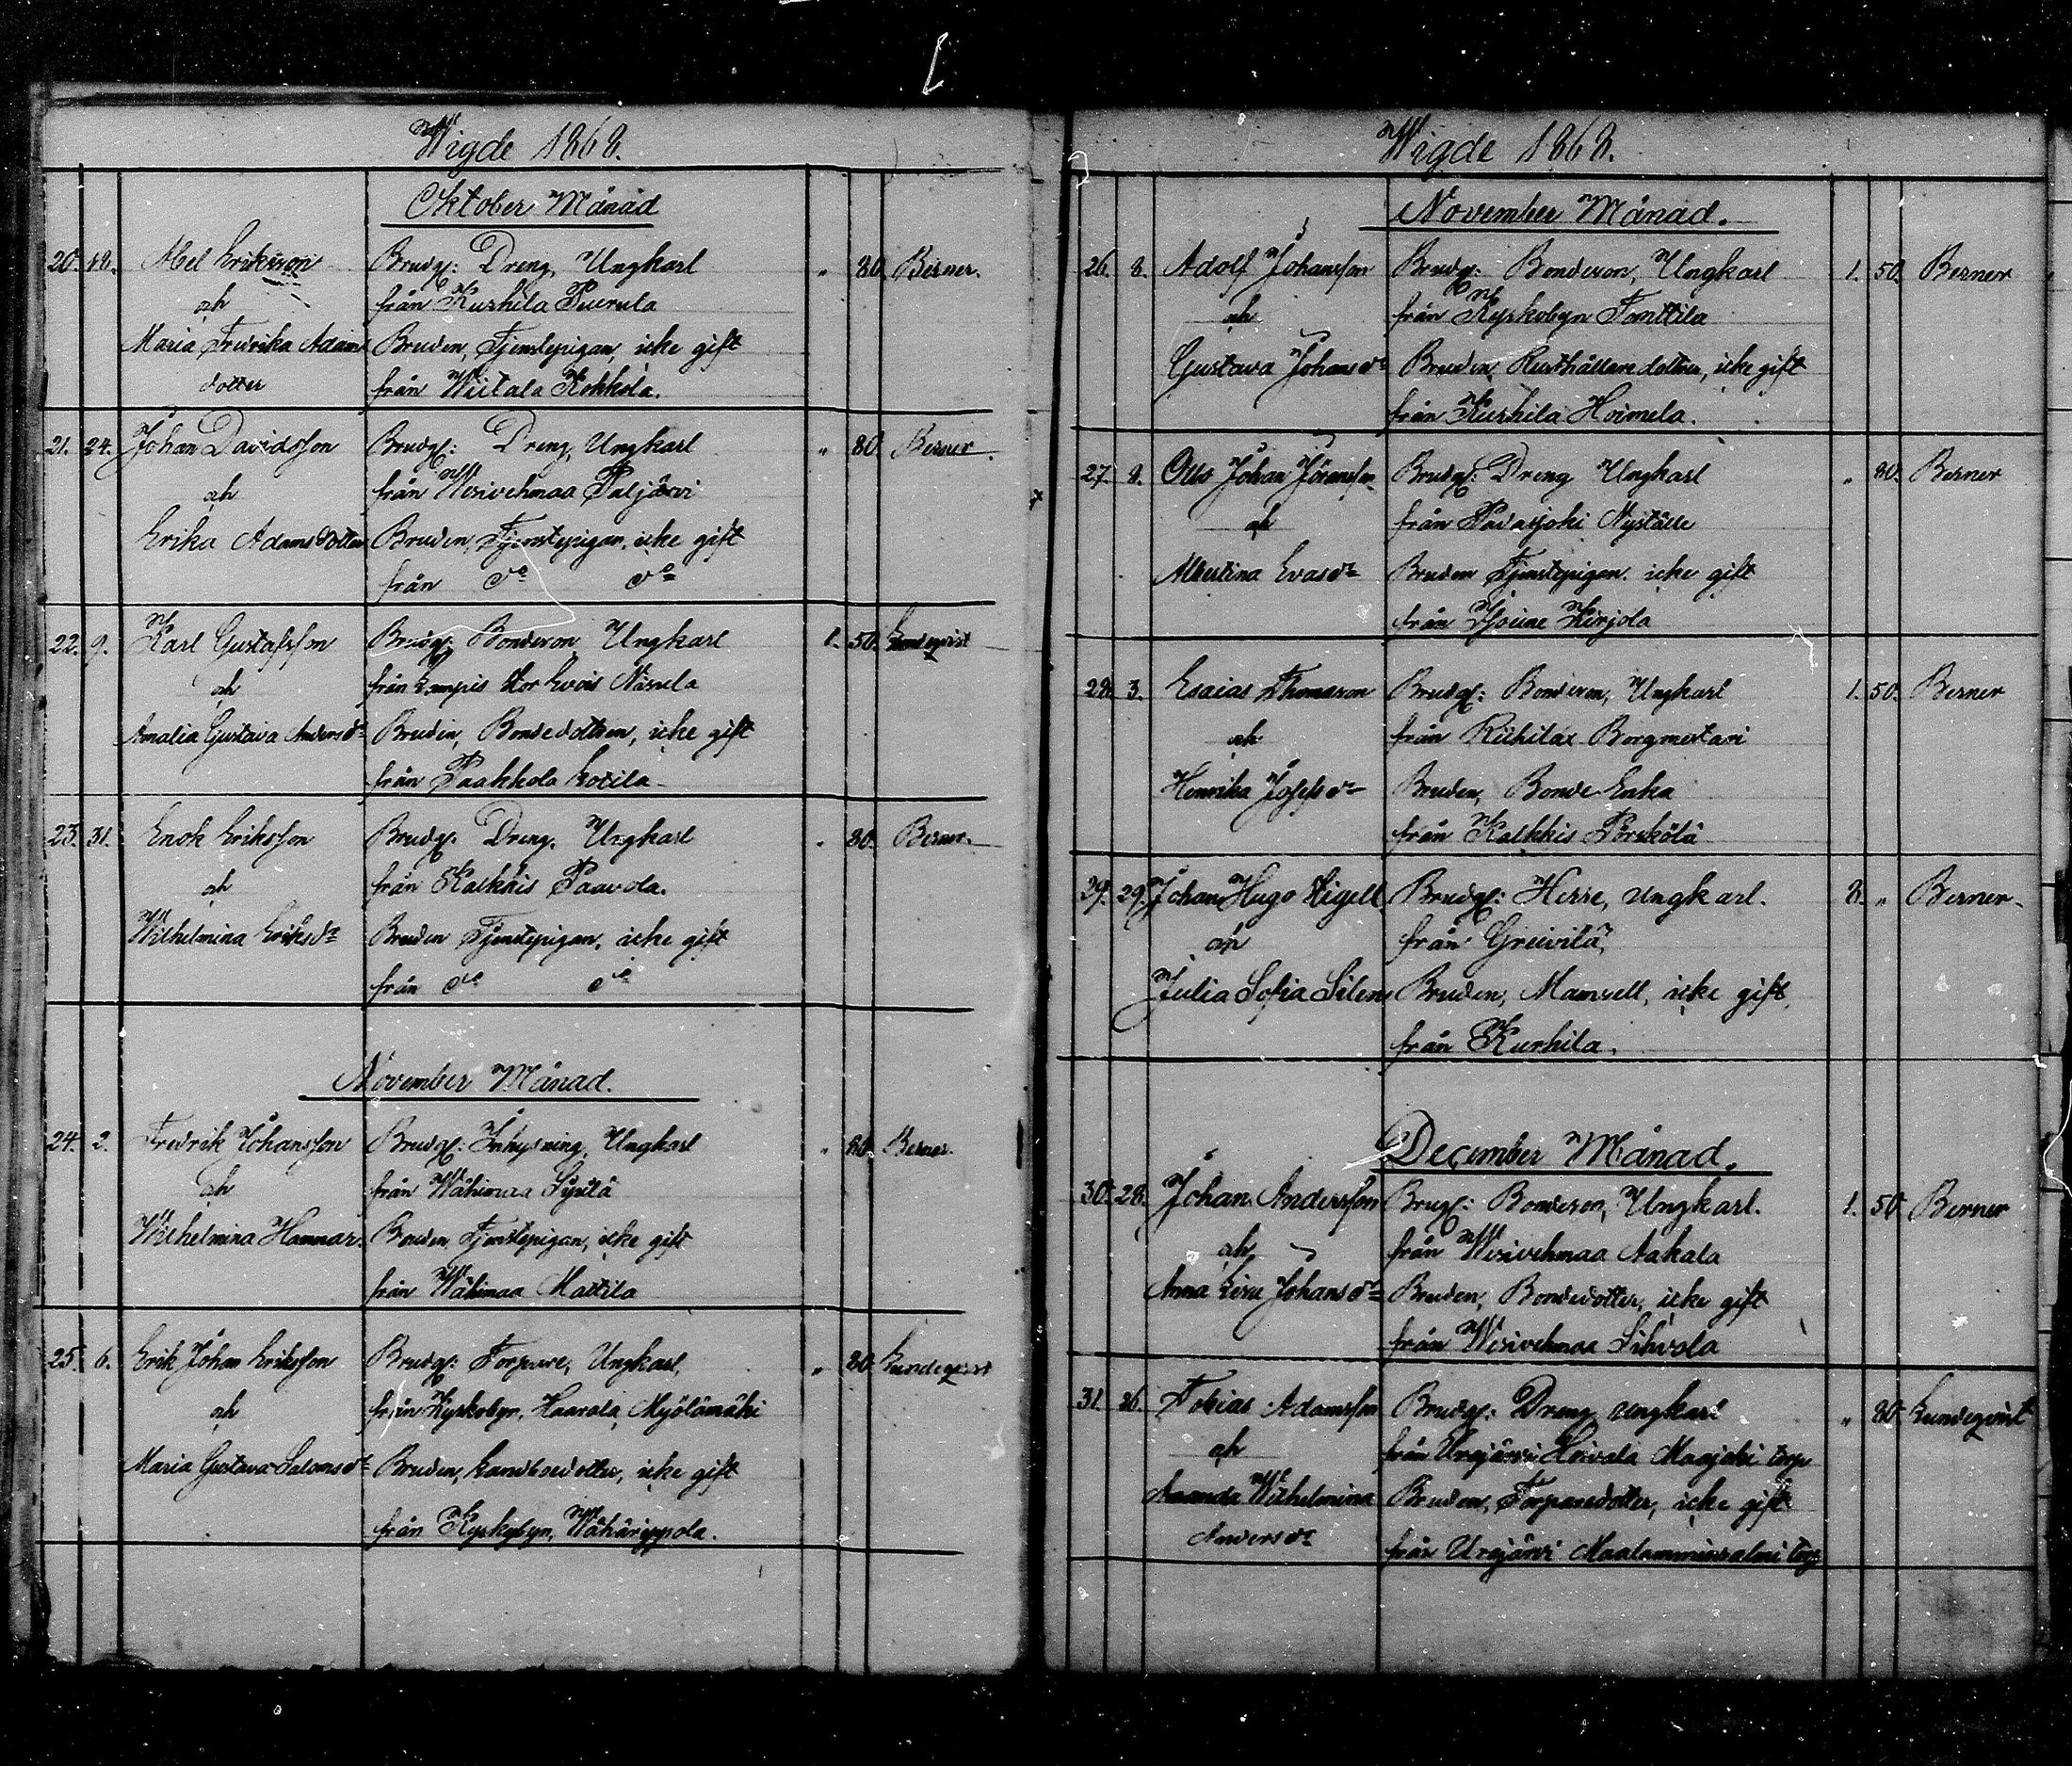 Wigde 1868.
Oktober Månad
20. 18. Abel Eriksson Brudg: Dreng, Ungkarl " 80. Berner.
och från Kurhila Puurula
Maria Fredrika Adams Bruden, Tjenstepigan, icke gift
dotter från Wiitala Kokkola.
21. 24. Johan Davidsson Brudg: Dreng, Ungkarl " 80. Berner.
och från Wesivehmaa Paljärvi
Erika Adamsdotter Bruden, Tjenstepigan, icke gift
från do do
22. 9. Karl Gustafsson Brudg: Bondeson, Ungkarl 1. 50. Lundeqvist
och från Lampis Stor Evois Näsula
Amalia Gustava Andersdr Bruden, Bondedottern, icke gift
från Paakkola Kotila
23. 31. Enok Eriksson Brudg: Dreng, Ungkarl " 80. Berner.
och från Kalkkis Paavola.
Wilhelmina Eriksdr Bruden Tjenstepigan, icke gift
från do do
November Månad.
24. 2. Fredrik Johansson Brudg: Inhysning, Ungkarl " 80. Berner.
och från Wähimaa Syrilä
Wilhelmina Hammar. Bruden, Tjenstepigan, icke gift
från Wähimaa Mattila
25. 6. Erik Johan Eriksson Brudg: Torpare, Ungkarl, " 80. Lundeqvist
och från Kyrkobyn, Haarala Myölämäki
Maria Gustava Salomsdr Bruden, Landbodotter, icke gift
från Kyrkobyn, Wähärippola.
Wigde 1868.
November Månad.
26. 8. Adolf Johansson Brudg: Bondeson, Ungkarl 1. 50. Berner
och från Kyrkobyn Tonttila
Gustava Johansdr Bruden, Rusthållare dottern, icke gift
från Kurhila Hoimela.
27. 8. Otto Johan Göransson Brudg: Dreng Ungkarl " 80. Berner
och från Padasjoki Nyställe
Albertina Evasdr Bruden Tjenstepigan. icke gift
från Kirjola
28. 3. Esaias Thomason Brudg: Bondeson, Ungkarl 1. 50. Berner
och från Riihilax Borgmestari
Henrika Josefsdr Bruden, Bonde Enka
från Kalkkis Pörskölä
29. 29. Johan Hugo Sigell Brudg: Herre, Ungkarl. 8. " Berner.
och från Greivilä,
Julia Sofia Silen Bruden, Mamsell, icke gift,
från Kurhila.
December Månad.
30. 28. Johan Andersson Brudg: Bondeson, Ungkarl. 1. 50. Berner
och från Wesivehmaa Aakala
Anna Lisa Johansdr Bruden, Bondedotter, icke gift
från Wesivehmaa Sihvola
31. 26. Tobias Adamsson Brudg: Dreng Ungkarl " 80. Lundeqvist
och från Urajärvi Hoivala Maajoki torp
Amanda Wilhelmina Bruden, Torparedotter, icke gift
Andersdr från Urajärvi torp